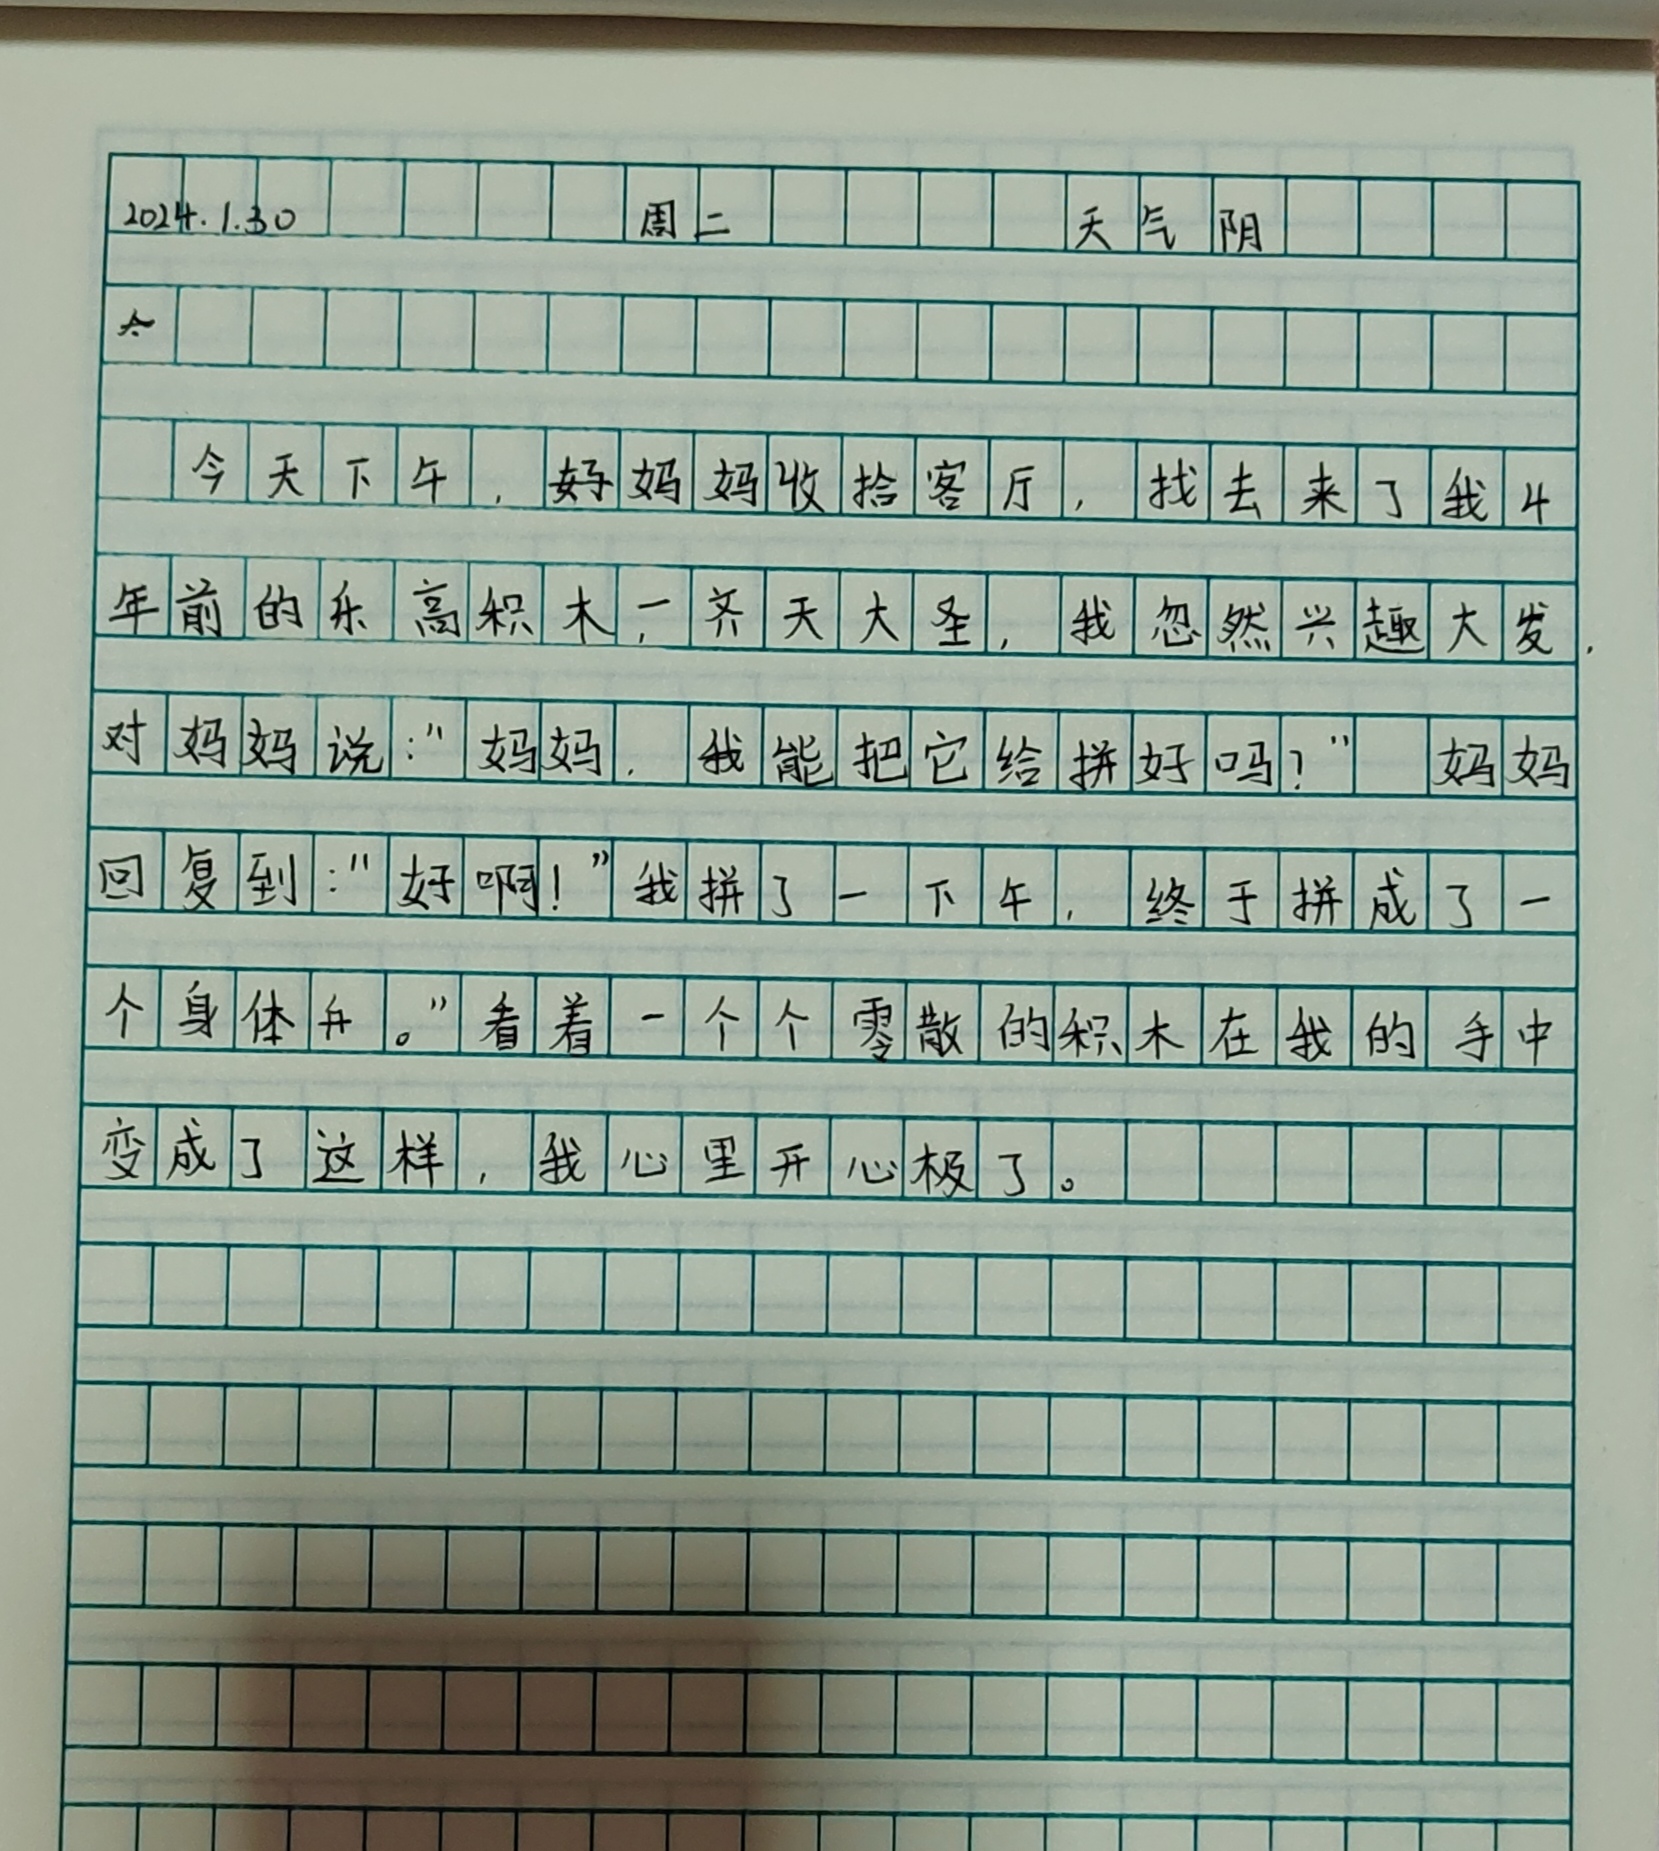 2024.1.30 周二 天气阴
今天下午,好妈妈收拾客厅,找去来了我4
年前的乐高积木,一齐天大圣,我忽然兴趣大发,
对妈妈说:"妈妈,我能把它给拼好吗?" 妈妈
回复到:"好啊!"我拼了一下午,终于拼成了一
个身体。"看着一个个零散的积木在我的手中
变成了这样,我心里开心极了。